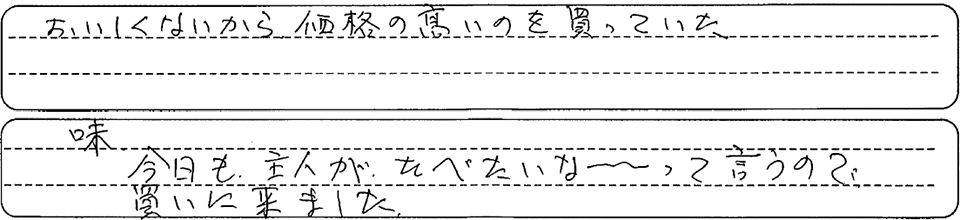 おいしくないから 価格の高いのを買っていた
味
今日も、主人が、たべたいな〜〜って言うので、
買いに来ました。